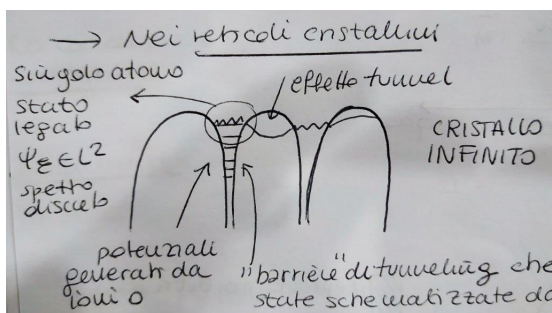 → Nei reticoli cristallini
singolo atomo
stato
legato
ψ_ε ∈ L²
spettro
discreto
effetto tunnel
CRISTALLO
INFINITO
potenziali
generati da
ioni o
"barriere" di tunneling che
state schematizzate da